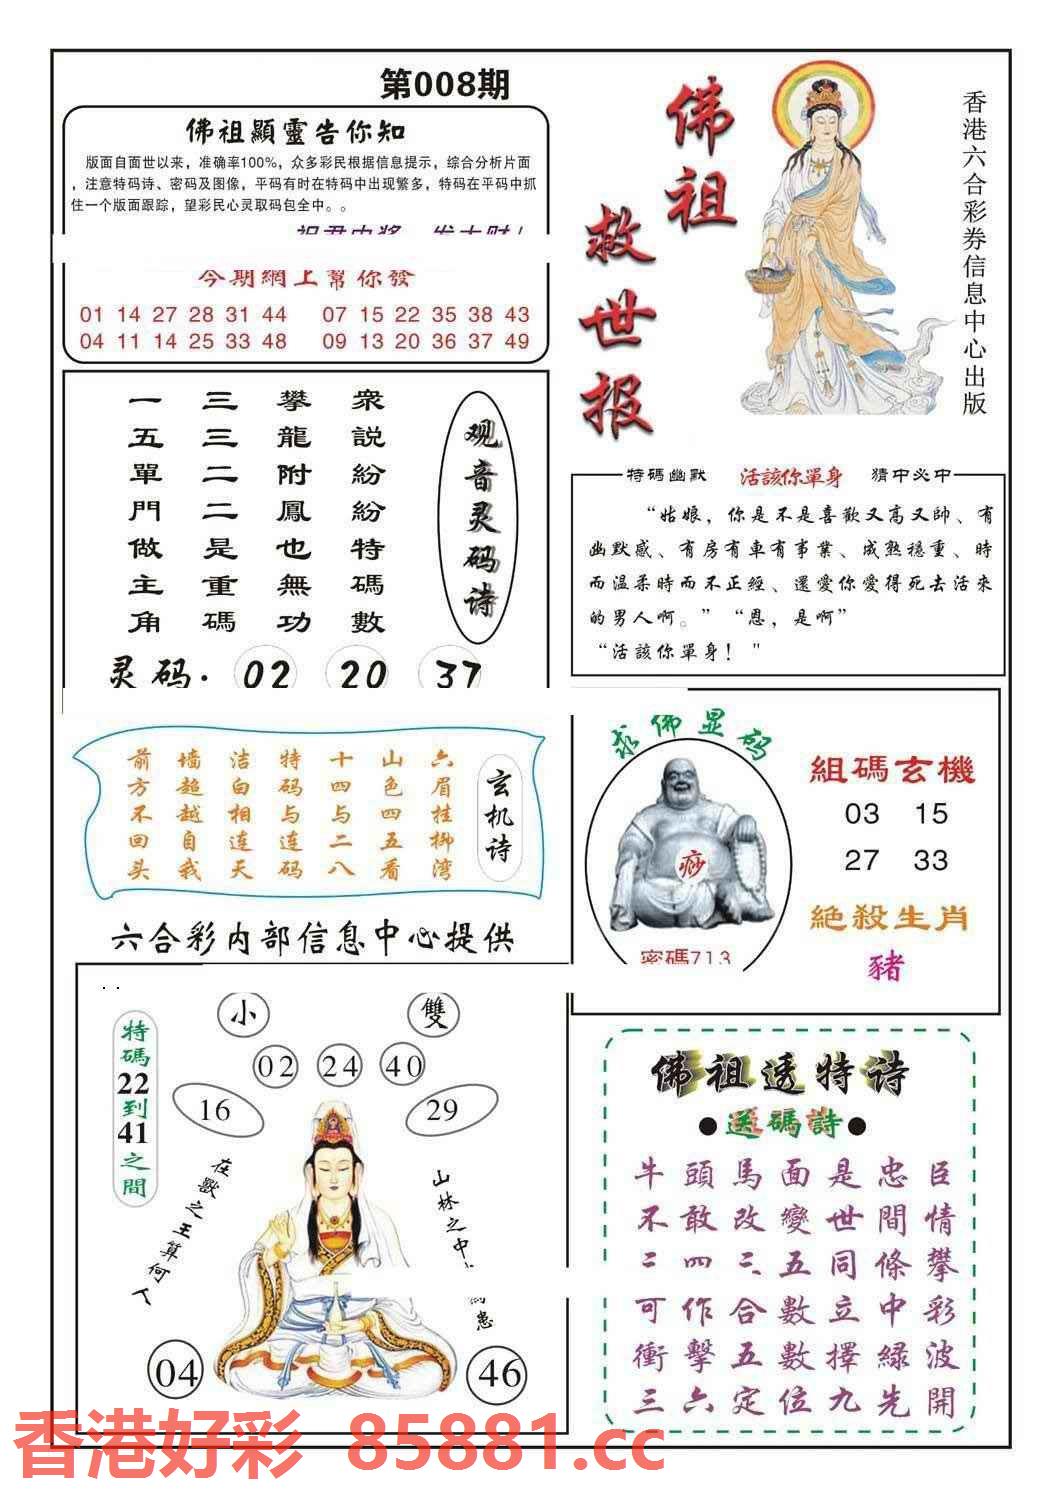 第008期
佛祖顯靈告你知
版面自面世以来，准确率100%，众多彩民根据信息提示，综合分析片面
，注意特码诗、密码及图像，平码有时在特码中出现繁多，特码在平码中抓
住一个版面跟踪，望彩民心灵取码包全中。。
今期網上幫你發
01 14 27 28 31 44 07 15 22 35 38 43
04 11 14 25 33 48 09 13 20 36 37 49
佛祖
救世报
香港六合彩券信息中心出版
观音灵码诗
衆說紛紛特碼數
攀龍附鳳也無功
三三二二是重碼
一五單門做主角
灵码. 02 20 37
特碼幽默 活該你單身 猜中必中
“姑娘，你是不是喜歡又高又帥、有
幽默感、有房有車有事業、成熟穩重、時
而温柔時而不正經、還愛你愛得死去活來
的男人啊。” “恩，是啊”
“活該你單身！"
玄机诗
六眉挂柳湾
山色四五看
十四与二八
特码与连码
洁白相连天
墙超越自我
前方不回头
求佛显码
痧
密碼713
組碼玄機
03 15
27 33
絕殺生肖
豬
六合彩内部信息中心提供
特碼22到41之間
小 雙
02 24 40
16 29
在獸之王算何人
山林之中
患
04 46
佛祖透特诗
●送碼詩●
牛頭馬面是忠臣
不敢改變世間情
二四二五同條攀
可作合數立中彩
衝擊五數擇綠波
三六定位九先開
香港好彩 85881.cc